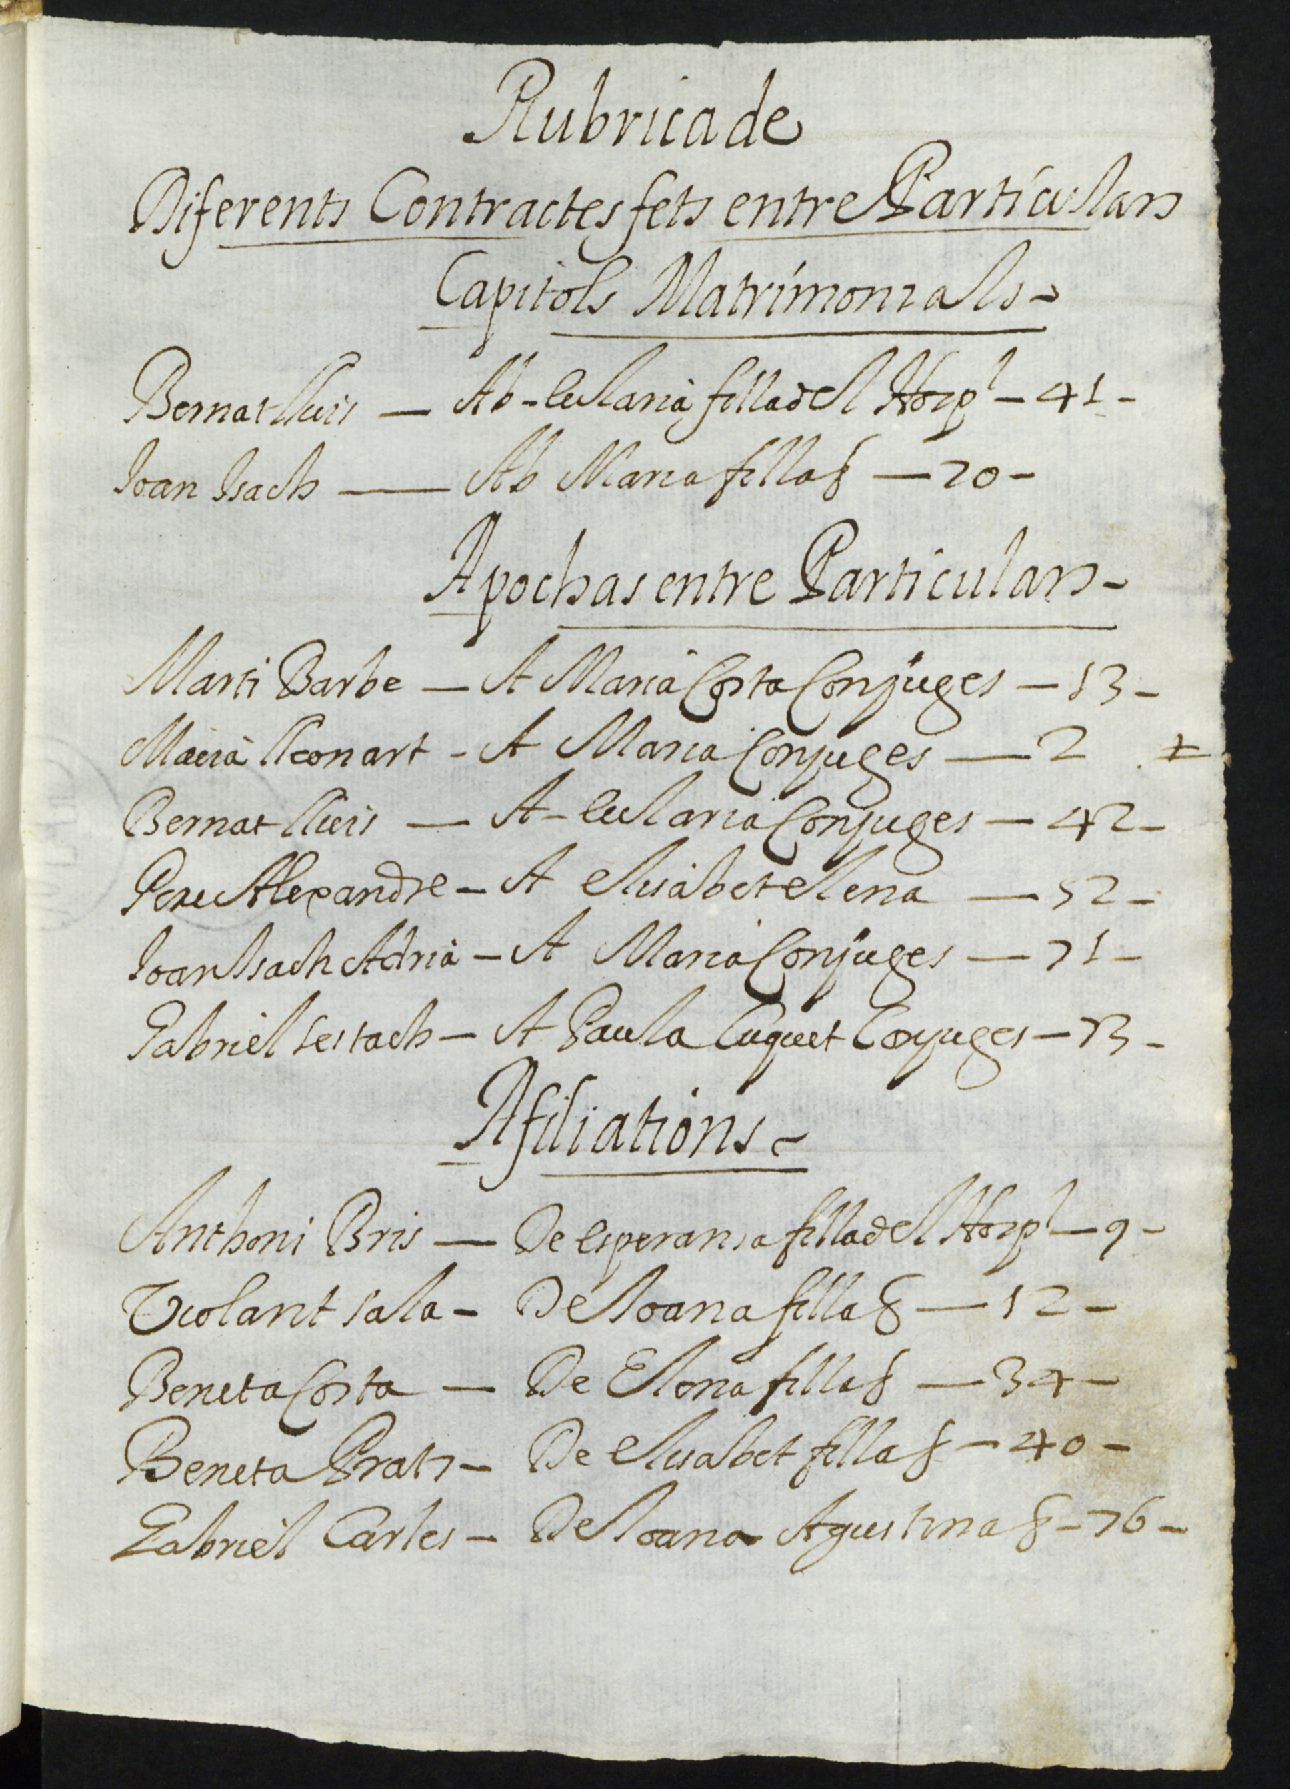 Rubrica de
Diferents Contractes fets entre Particulars
Capitols Matrimonials
Bernat lluis — Ab Eularia filla del Hospl — 41 -
Joan Isach — Ab Maria filla § — 70 -
Apochas entre Particulars -
Marti Barbe — A Maria Costa Conjuges — 13 -
Macià lleonart - A Maria Conjuges — 2
Bernat lluis — A Eularia Conjuges — 42 -
Pere Alexandre — A Elisabet Elena — 52 -
Joan Isach Adrià — A Maria Conjuges — 71 -
Gabriel Sestach — A Paula Cuquet Conjuges — 73 -
Afiliations -
Anthoni Bris — De Esperansa filla del Hospl — 9 -
Violant Sala — De Joana filla § — 12 -
Beneta Costa — De Elena filla § — 34 -
Beneta Prats — De Elisabet filla § — 40 -
Gabriel Carles — De Joana Agustina § — 76 -